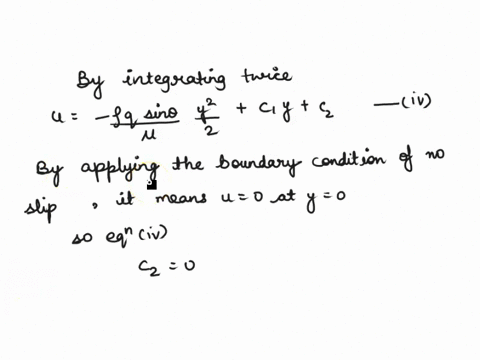 By integrating twice
u = -ρg sinθ/μ y²/2 + c₁y + c₂ —(iv)
By applying the boundary condition of no
slip , it means u=0 at y=0
so eqⁿ (iv)
c₂ = 0